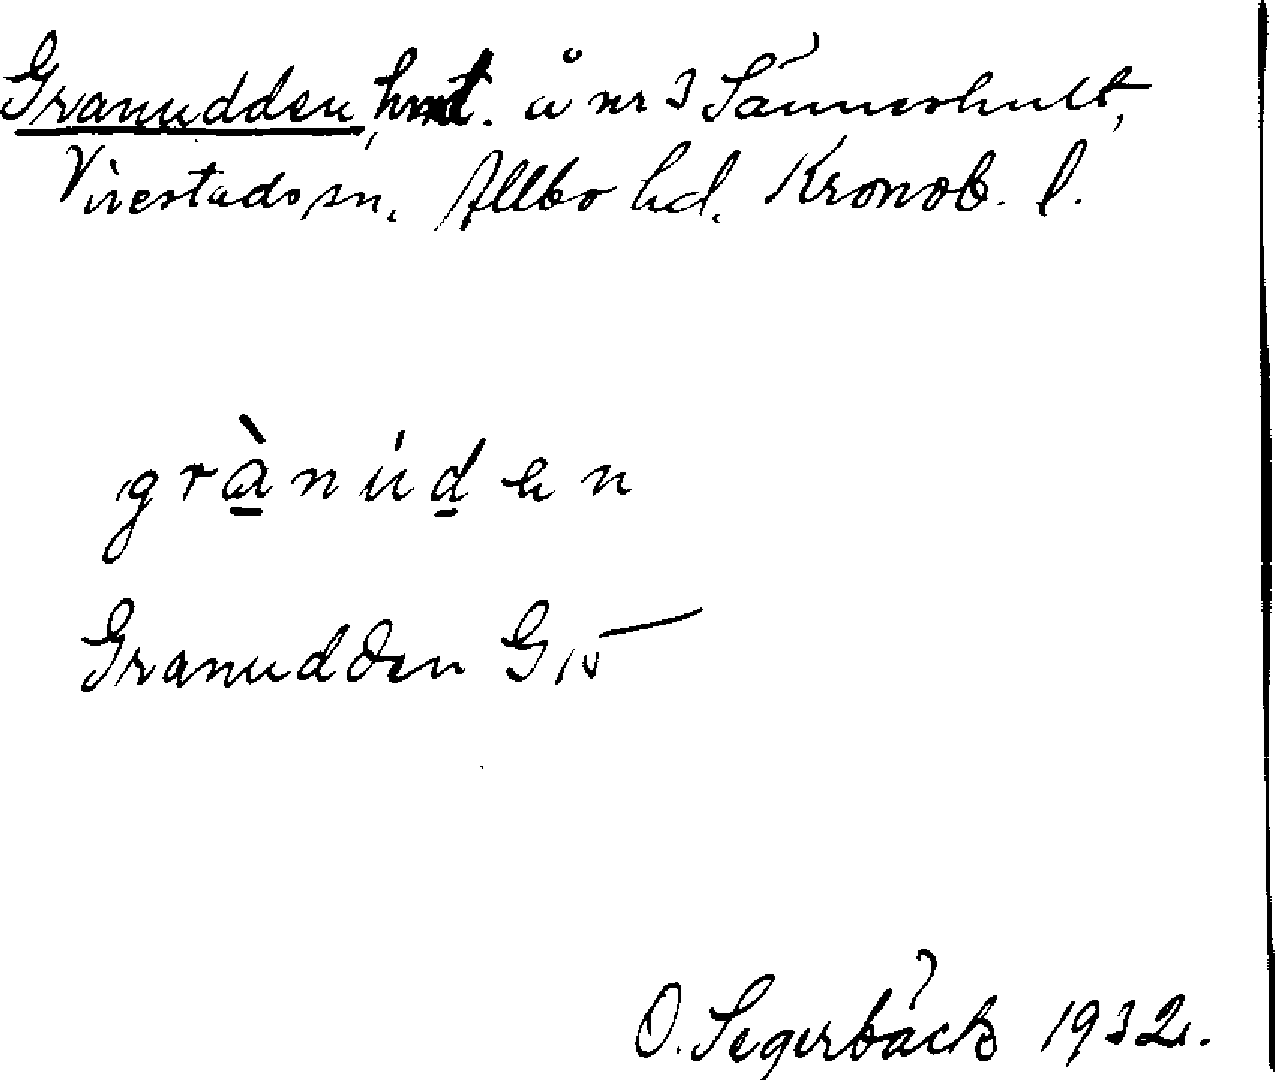 Granudden, hmt. å nr 3 Sännershult,
Virestads sn. Allbo hd. Kronob. l.
grànúden
Granudden G 15
O. Segerbäck 1932.